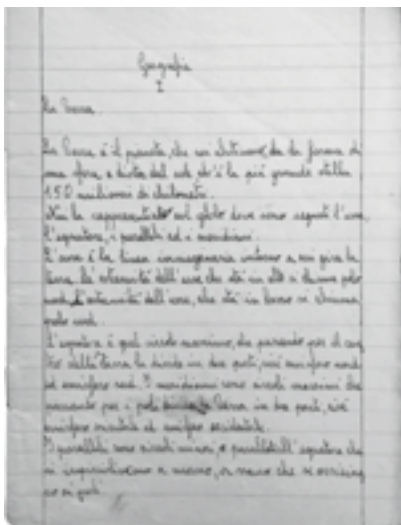 Geografia
I
La Terra.
La Terra è il pianeta, che noi abitiamo, ha la forma di
una sfera, e dista dal sole, ch'è la più grande stella
150 milioni di chilometri.
Noi la rappresentiamo sul globo dove sono segnati l'asse,
l'equatore, i paralleli ed i meridiani.
L'asse è la linea immaginaria intorno a cui gira la
terra. L'estremità dell'asse che sta in alto si chiama polo
nord, l'estremità dell'asse, che sta in basso si chiama,
polo sud.
L'equatore è quel circolo massimo, che passando per il cen
tro della Terra la divide in due parti, cioè emisfero nord
ed emisfero sud. I meridiani sono circoli massimi che
passando per i poli la Terra in due parti, cioè
emisfero orientale ed emisfero occidentale.
I paralleli sono circoli minori, e paralleli all'equatore che
si impiccoliscono a mano, a mano che si avvicina
no ai poli.